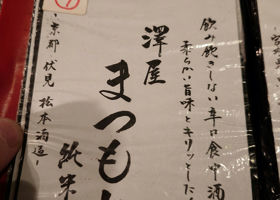 飲み飽きしない辛口食中酒
柔らかい旨味とキリッとした
澤屋
まつもと
純米
京都 伏見 松本酒造